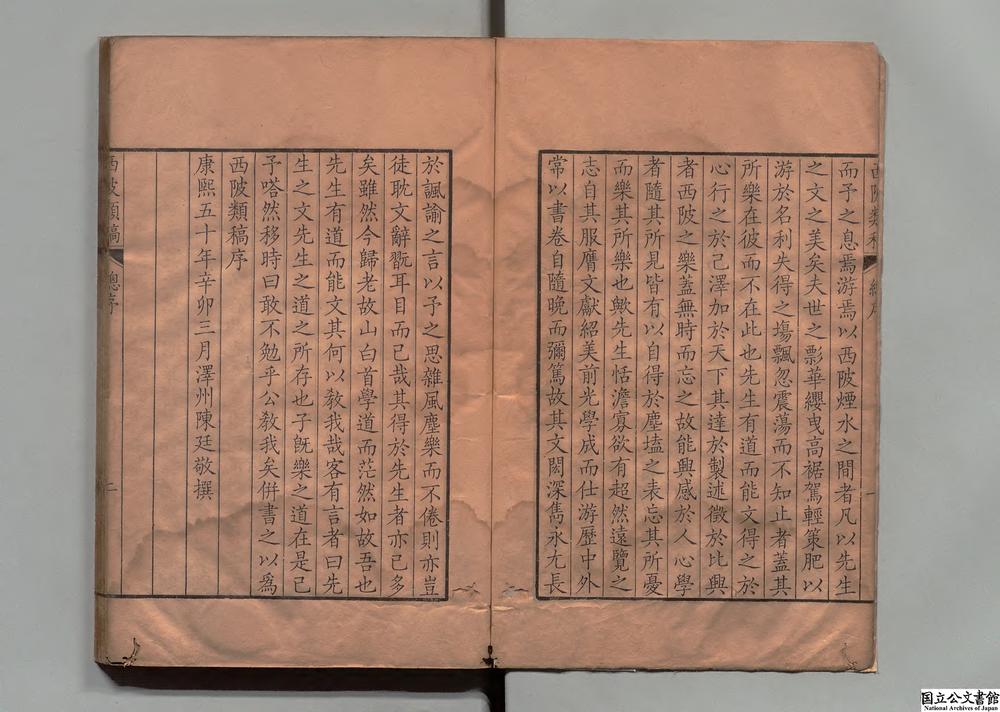 西陂類稿 總序 一
而予之息焉游焉以西陂煙水之間者凡以先生
之文之美矣夫世之影華纓曳高裾駕輕策肥以
游於名利失得之場飄忽震蕩而不知止者蓋其
所樂在彼而不在此也先生有道而能文得之於
心行之於己澤加於天下其達於製述徵於比興
者西陂之樂蓋無時而忘之故能興感於人心學
者隨其所見皆有以自得於塵壒之表忘其所憂
而樂其所樂也歟先生恬澹寡欲有超然遠覽之
志自其服膺文獻紹美前光學成而仕游歷中外
常以書卷自隨晚而彌篤故其文閎深雋永尤長
於諷諭之言以予之思雜風塵樂而不倦則亦豈
徒耽文辭翫耳目而已哉其得於先生者亦已多
矣雖然今歸老故山白首學道而茫然如故吾也
先生有道而能文其何以教我哉客有言者曰先
生之文先生之道之所存也子既樂之道在是已
予嗒然移時曰敢不勉乎公教我矣併書之以為
西陂類稿序
康熙五十年辛卯三月澤州陳廷敬撰
西陂類稿 總序 二
国立公文書館
National Archives of Japan